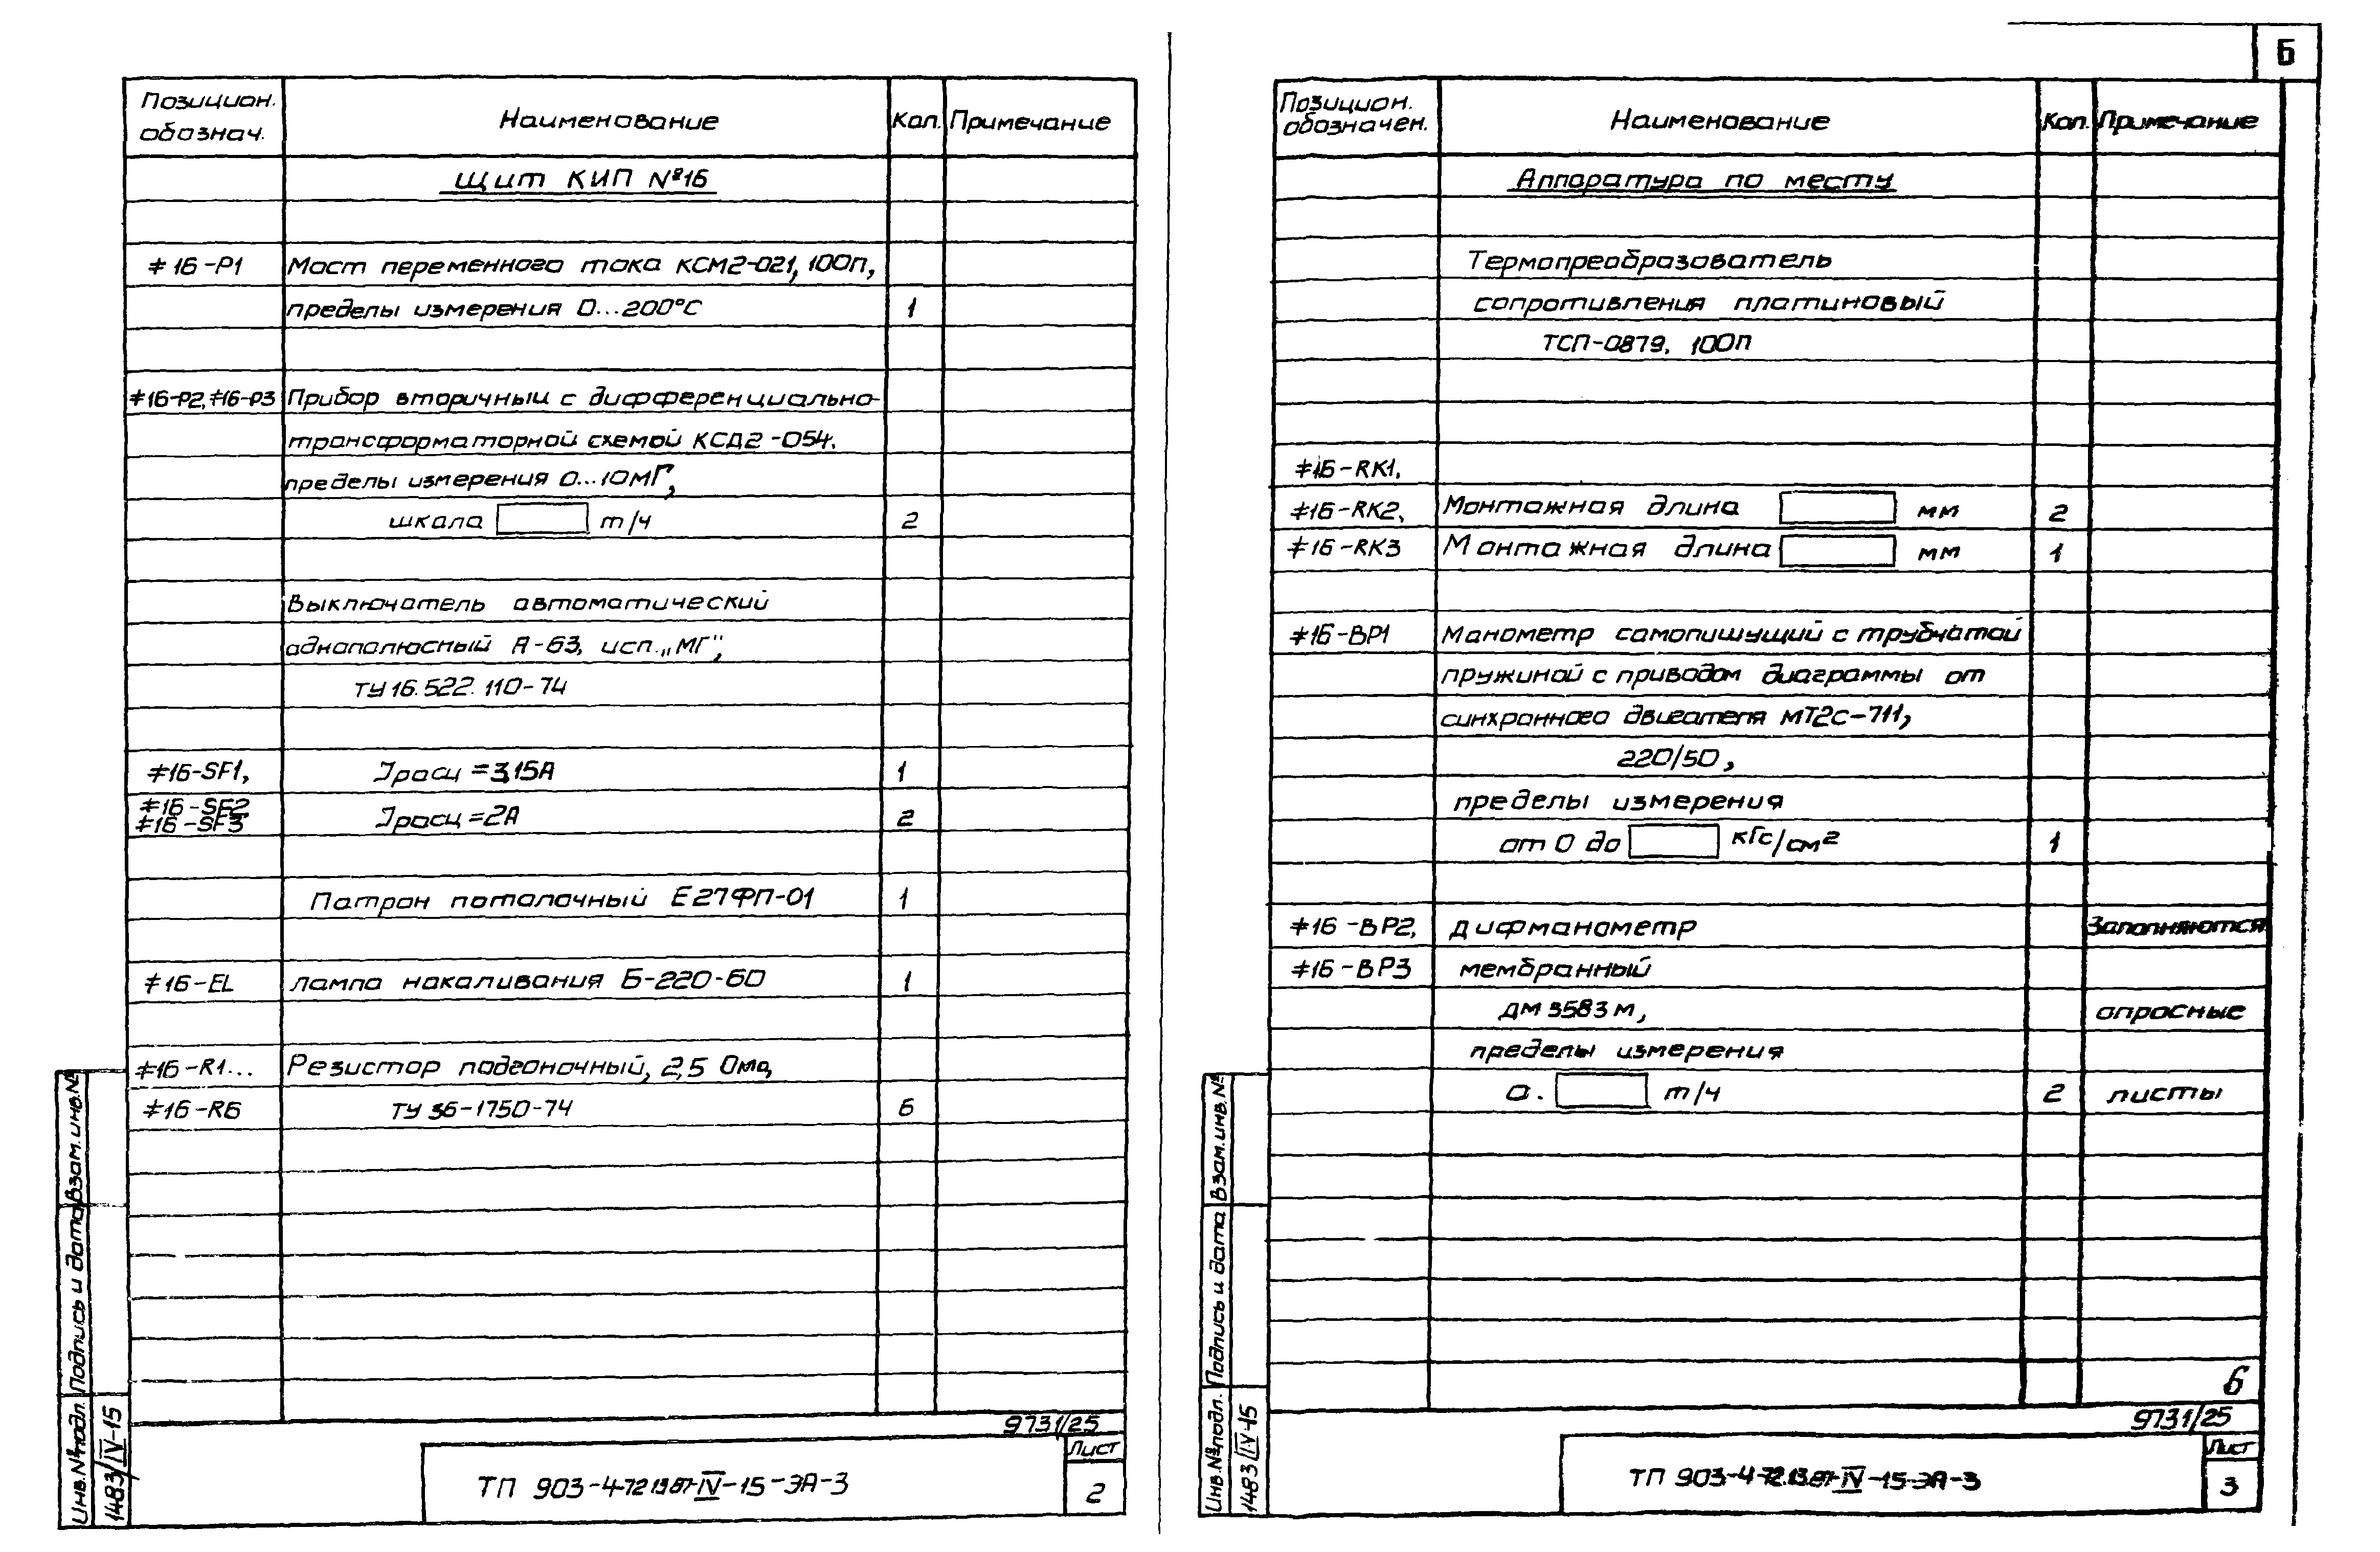 Позицион.
обознач.
Наименование
Кол.
Примечание
Щит КИП №16
≠16-P1
Мост переменного тока КСМ2-021, 100П,
пределы измерения 0...200°С
1
≠16-P2, ≠16-P3
Прибор вторичный с дифференциально-
трансформаторной схемой КСД2-054.
пределы измерения 0...10мГ,
шкала т/ч
2
Выключатель автоматический
однополюсный А-63, исп. „МГ",
ТУ 16.522.110-74
≠16-SF1,
Jрасц = 3,15А
1
≠16-SF2
≠16-SF3
Jрасц = 2А
2
Патрон потолочный Е27ФП-01
1
≠16-EL
лампа накаливания Б-220-60
1
≠16-R1...
Резистор подгоночный, 2,5 Ома,
≠16-R6
ТУ 36-1750-74
6
9731/25
ТП 903-4-72.13.87-IV-15-ЭА-3
Лист
2
Инв.№подл.
Подпись и дата
Взам.инв.№
1483/IV-15
Б
Позицион.
обозначен.
Наименование
Кол.
Примечание
Аппаратура по месту
Термопреобразователь
сопротивления платиновый
ТСП-0879, 100П
≠16-RK1,
≠16-RK2,
Монтажная длина мм
2
≠16-RK3
Монтажная длина мм
1
≠16-BP1
Манометр самопишущий с трубчатой
пружиной с приводом диаграммы от
синхронного двигателя МТ2С-711,
220/50,
пределы измерения
от 0 до кГс/см²
1
≠16-BP2,
дифманометр
Заполняются
≠16-BP3
мембранный
ДМ 3583М,
опросные
пределы измерения
0. т/ч
2
листы
6
9731/25
ТП 903-4-72.13.87-IV-15-ЭА-3
Лист
3
Инв.№подл.
Подпись и дата
Взам.инв.№
1483/IV-15